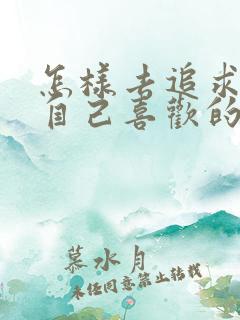 怎樣去追求
自己喜歡的
慕水月
未任同意禁止转载